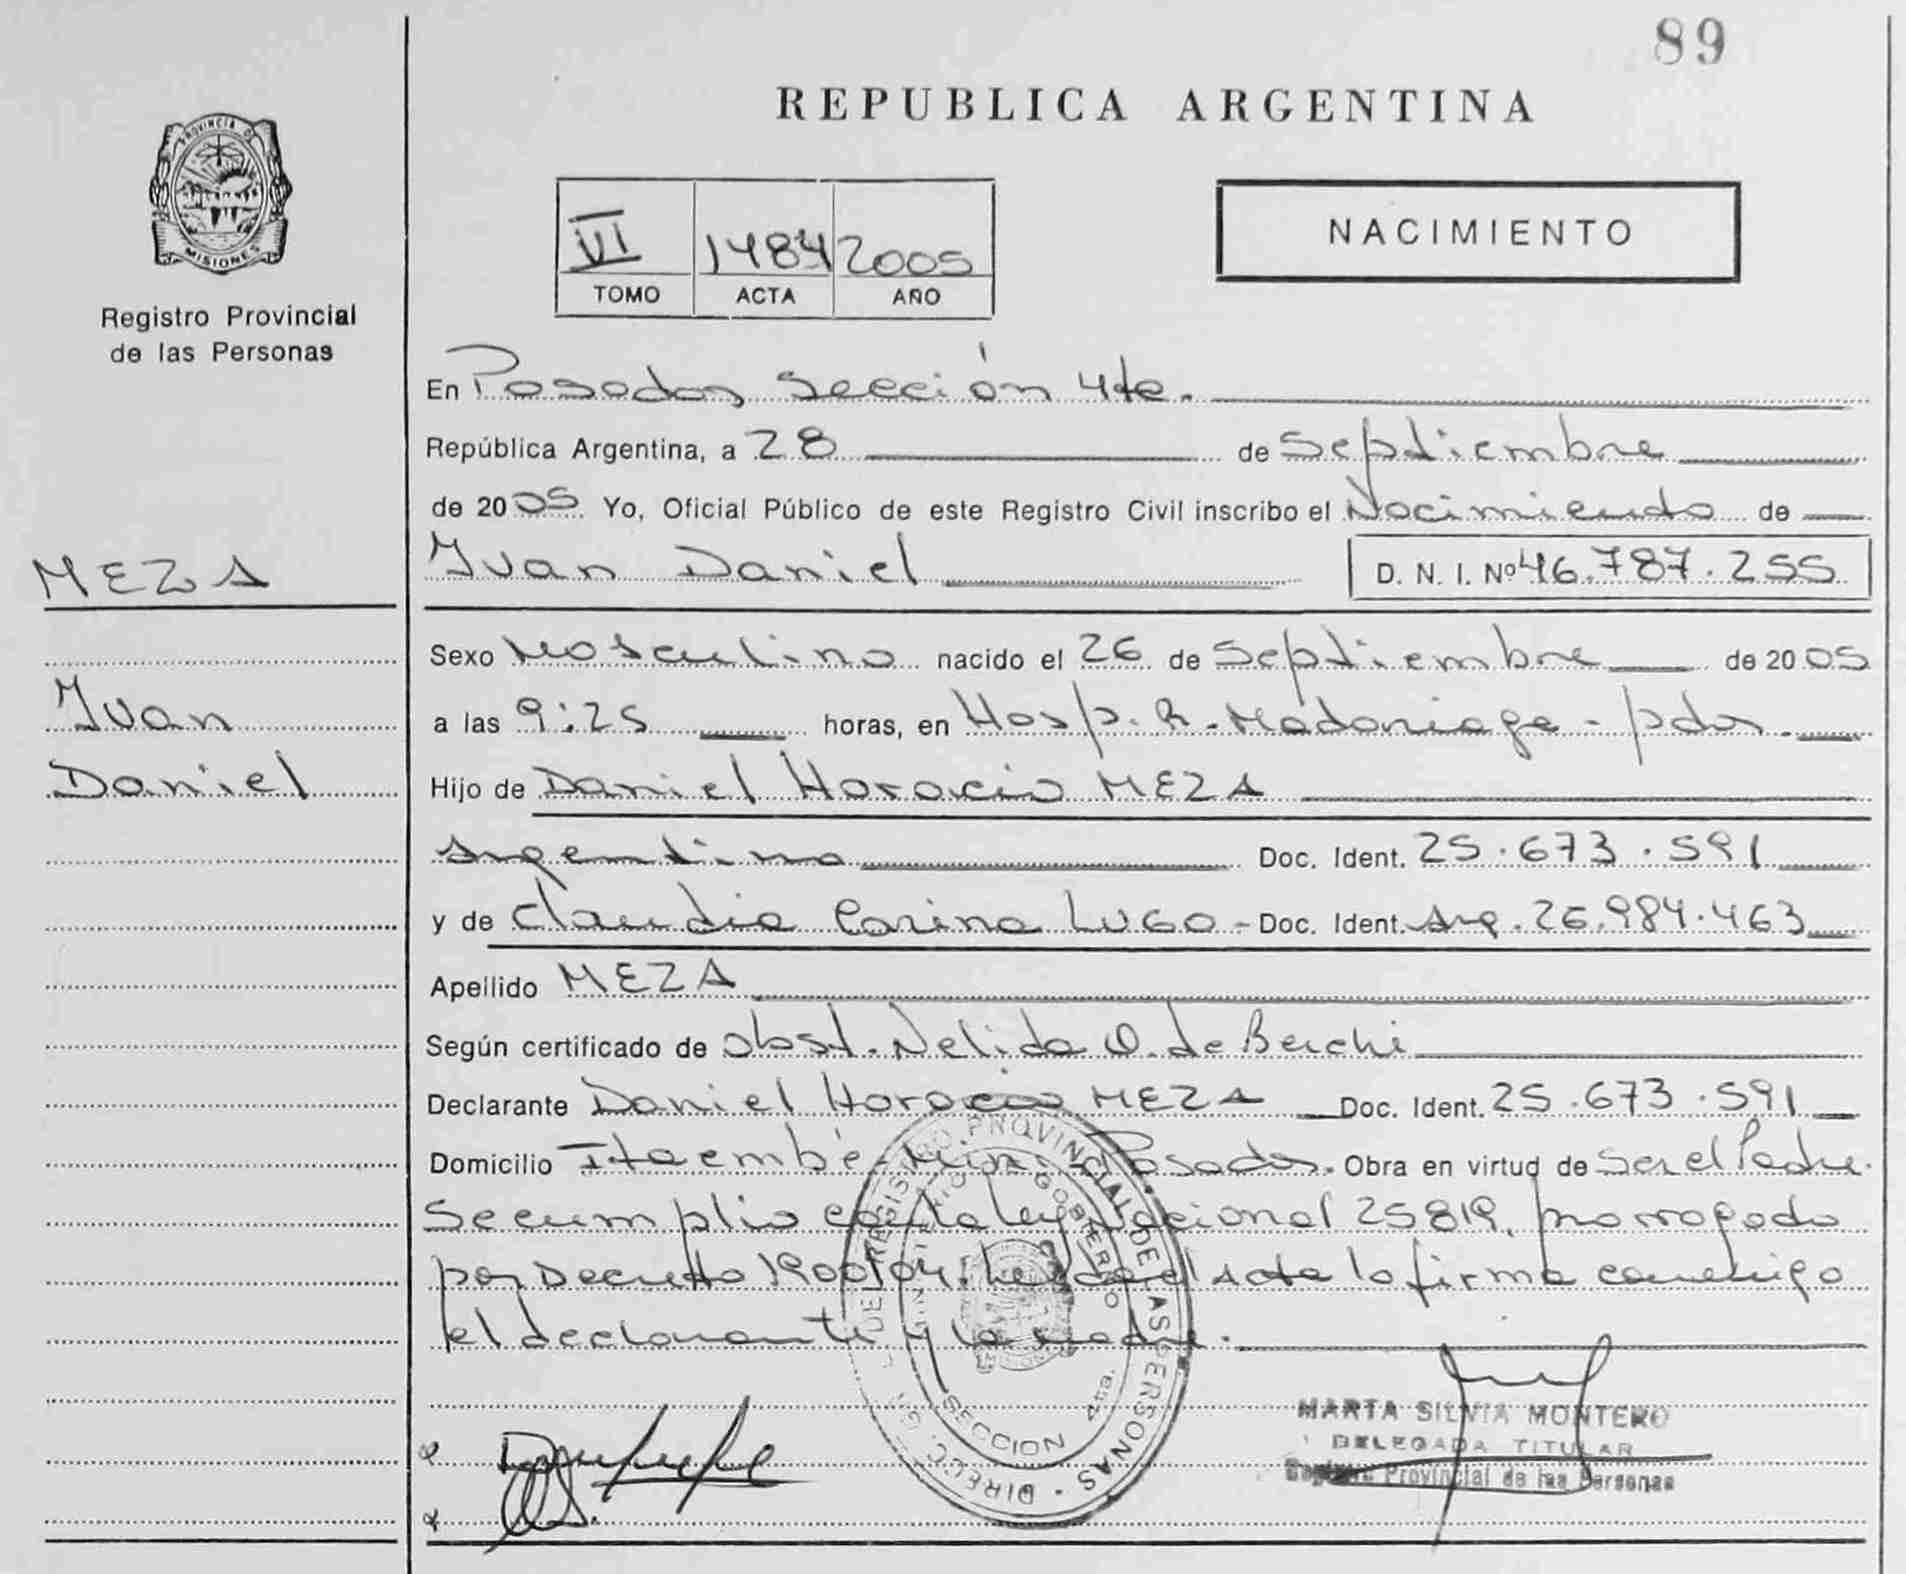 89
REPUBLICA ARGENTINA
PROVINCIA DE
MISIONES
Registro Provincial
de las Personas
VI 1484 2005
TOMO ACTA AÑO
NACIMIENTO
En Posadas Sección 4ta.
República Argentina, a 28 de Septiembre
de 2005 Yo, Oficial Público de este Registro Civil inscribo el Nacimiento de
Ivan Daniel D. N. I. Nº 46.787.255
MEZA
Ivan
Daniel
Sexo Masculino nacido el 26 de Septiembre de 2005
a las 9:25 horas, en Hosp. R. Madariaga - pdas.
Hijo de Daniel Horacio MEZA
Argentina Doc. Ident. 25.673.591
y de Claudia Carina LUGO - Doc. Ident. Arg. 26.984.463
Apellido MEZA
Según certificado de obst. Nelida O. de Berchi
Declarante Daniel Horacio MEZA Doc. Ident. 25.673.591
Domicilio Itaembé Mini - Posadas. Obra en virtud de ser el Padre.
Se cumplio con la ley Nacional 25819, prorrogada
por Decreto 1900/04. Leida el Acta la firma conmigo
el declarante y la madre.
DIRECC. GN. DEL REGISTRO PROVINCIAL DE LAS PERSONAS
MINISTERIO GOBIERNO
SECCION 4ta.
MARTA SILVIA MONTERO
DELEGADA TITULAR
Registro Provincial de las Personas